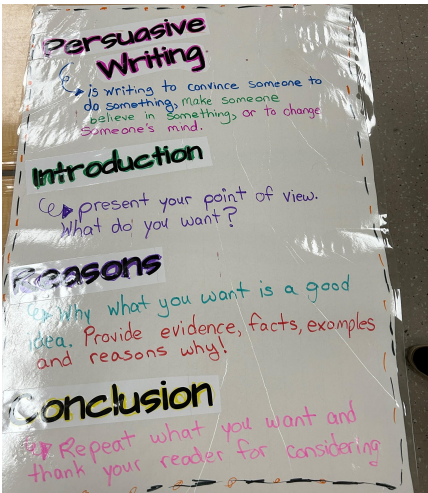 Persuasive
Writing
is writing to convince someone to
do something, make someone
believe in something, or to change
someone's mind.
Introduction
present your point of view.
What do you want?
Reasons
Why what you want is a good
idea. Provide evidence, facts, examples
and reasons why!
Conclusion
Repeat what you want and
thank your reader for considering